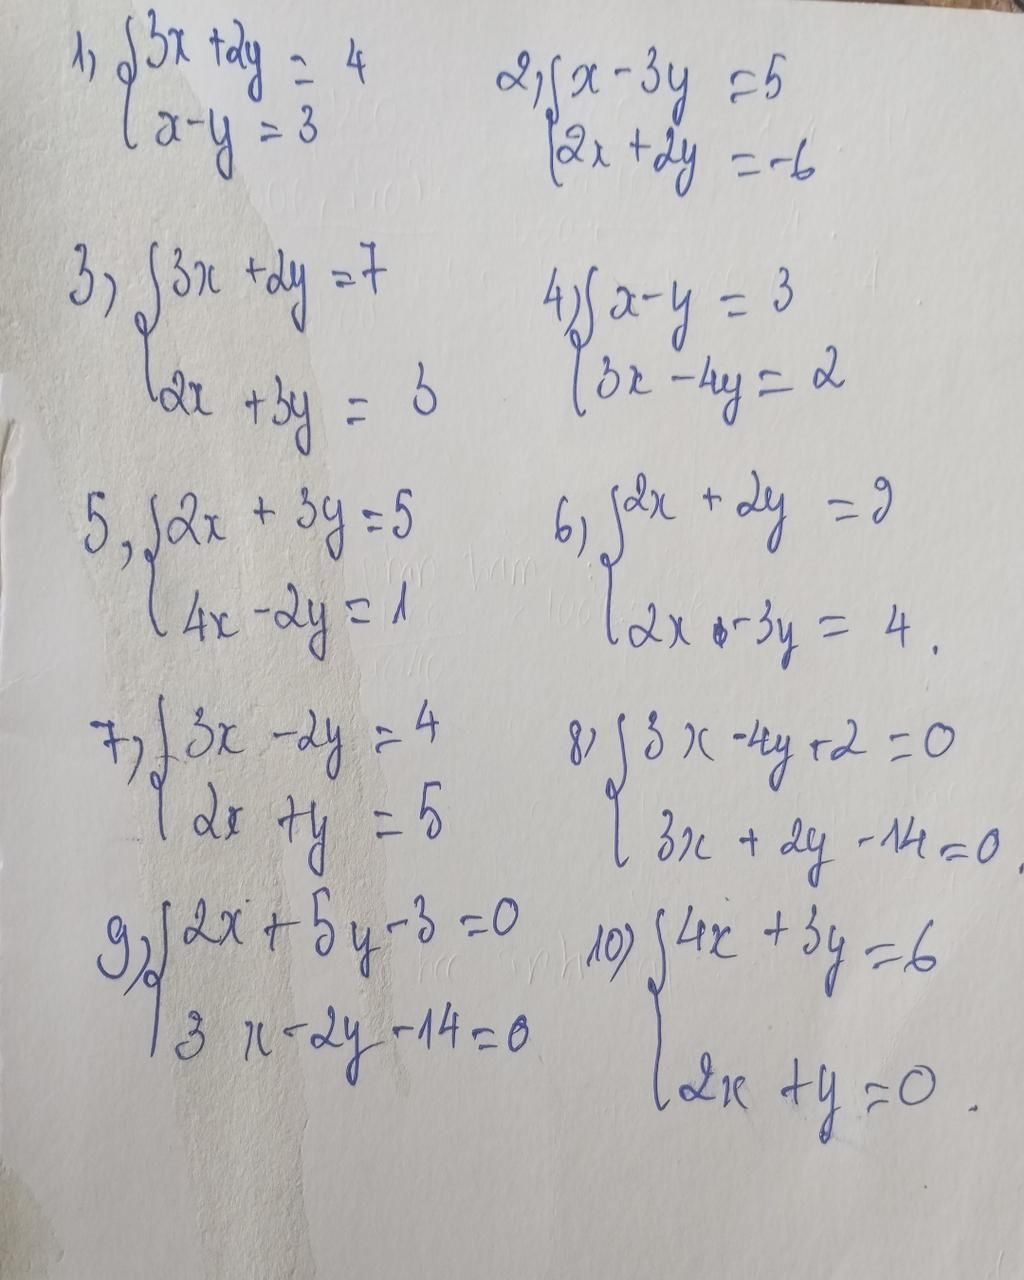 1, { 3x + 2y = 4
x - y = 3
2, { x - 3y = 5
2x + 2y = -6
3, { 3x + 2y = 7
2x + 3y = 3
4, { x - y = 3
3x - 4y = 2
5, { 2x + 3y = 5
4x - 2y = 1
6, { 2x + 2y = 9
2x - 3y = 4.
7, { 3x - 2y = 4
2x + y = 5
8, { 3x - 4y + 2 = 0
3x + 2y - 14 = 0.
9, { 2x + 5y - 3 = 0
3x - 2y - 14 = 0
10) { 4x + 3y = 6
2x + y = 0.